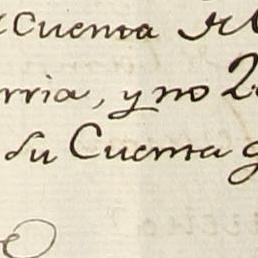 Cuenta
rria, y no
su Cuenta